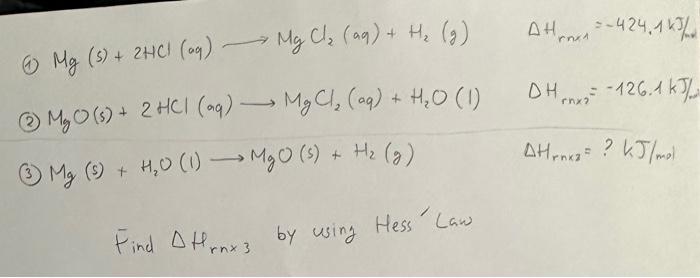 ① Mg (s) + 2HCl (aq) → MgCl₂ (aq) + H₂ (g) ΔHrnx1 = -424.1 kJ/mol
② MgO(s) + 2HCl (aq) → MgCl₂ (aq) + H₂O (l) ΔHrnx2 = -126.1 kJ/mol
③ Mg (s) + H₂O (l) → MgO (s) + H₂ (g) ΔHrnx3 = ? kJ/mol
Find ΔHrnx3 by using Hess' Law